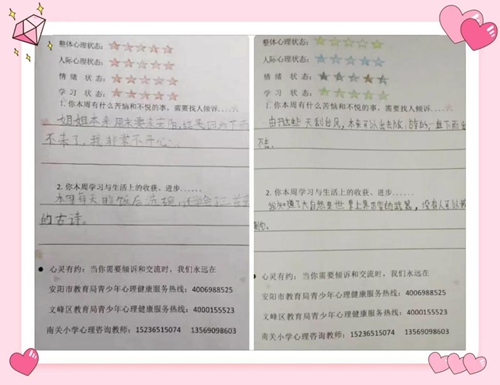 整体心理状态:
人际心理状态:
情 绪 状 态:
学 习 状 态:
1. 你本周有什么苦恼和不悦的事,需要找人倾诉......
姐姐本来周末要来安阳,结果因为下雨
不来了,我非常不开心。
2. 你本周学习与生活上的收获、进步......
本周每天晚饭后洗碗,还学会了一首
的古诗。
● 心灵有约:当你需要倾诉和交流时,我们永远在
安阳市教育局青少年心理健康服务热线:4006988525
文峰区教育局青少年心理健康服务热线:4000155523
南关小学心理咨询教师:15236515074 13569098603
整体心理状态:
人际心理状态:
情 绪 状 态:
学 习 状 态:
1. 你本周有什么苦恼和不悦的事,需要找人倾诉......
由于这些天刮台风,本来可以出去
2. 你本周学习与生活上的收获、进步......
我知道了大自然是世界上最厉害的武器,没有人可以
● 心灵有约:当你需要倾诉和交流时,我们永远在
安阳市教育局青少年心理健康服务热线:4006988525
文峰区教育局青少年心理健康服务热线:4000155523
南关小学心理咨询教师:15236515074 13569098603